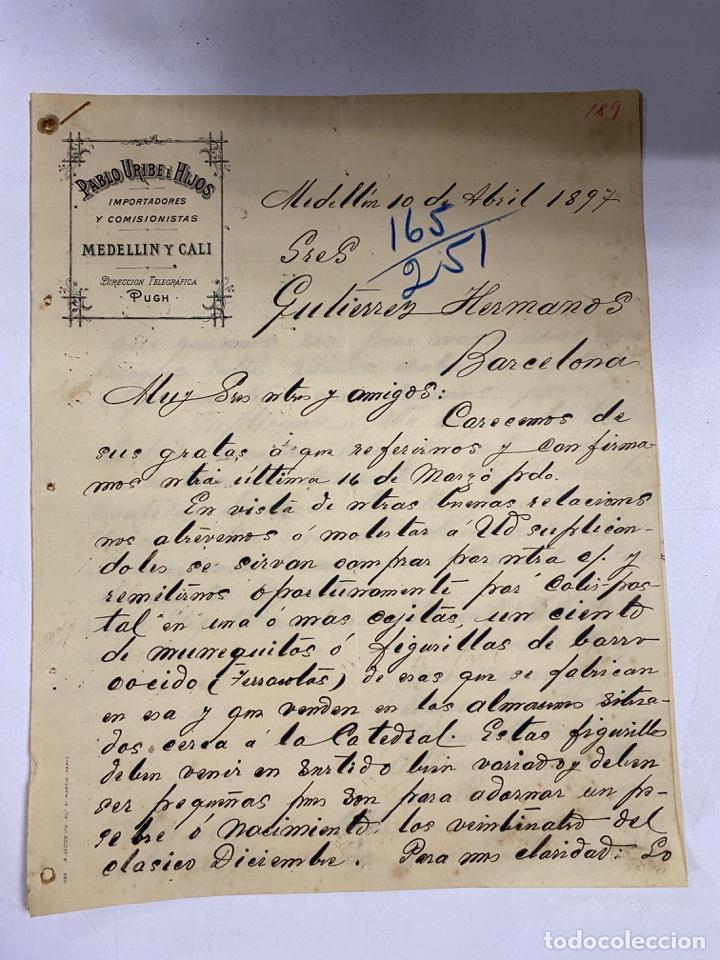 189
PABLO URIBE É HIJOS
IMPORTADORES
Y COMISIONISTAS
MEDELLIN Y CALI
DIRECCION TELEGRÁFICA
PUGH
Medellin 10 de Abril 1897
165
251
Sres
Gutierrez Hermanos
Barcelona
Muy Sres ntros y amigos:
Carecemos de
sus gratas á que referirnos y confirma-
mos ntra última 16 de Marzo pdo.
En vista de ntras buenas relaciones
nos atrevemos á molestar á Ud suplican-
doles se sirvan comprar por ntra c/. y
remitirnos oportunamente por Colis-pos-
tal en una ó mas cajitas, un ciento
de muñequitos ó figurillas de barro
cocido (Terracotas) de esas que se fabrican
en esa y que venden en los almacenes situa-
dos cerca á la Catedral. Estas figurillas
deben venir en surtido bien variado y deben
ser pequeñas pues son para adornar un pe-
sebre ó Nacimiento los veinticuatro del
clasico Diciembre. Para mas claridad: Lo
todocoleccion